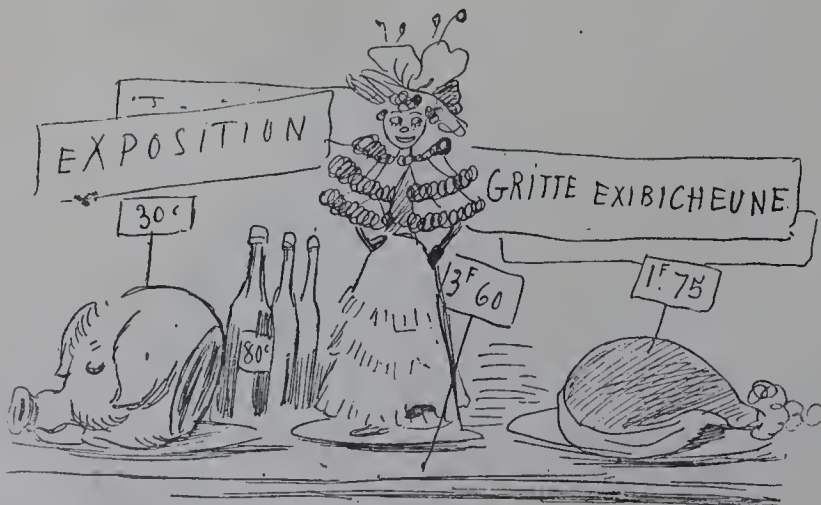 EXPOSITION
GRITTE EXIBICHEUNE
30ᶜ
80ᶜ
3ᶠ 60
1ᶠ. 75